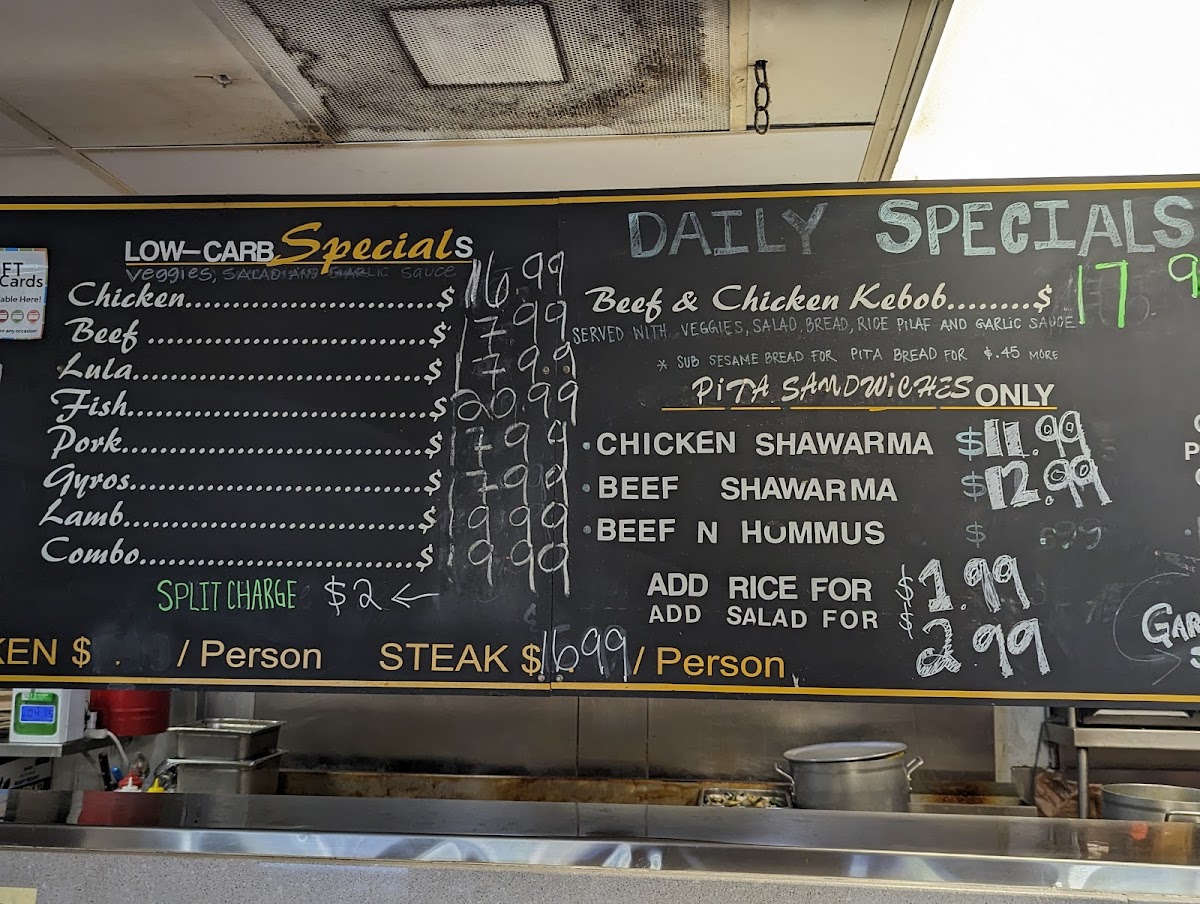 LOW-CARB Specials
Veggies, SALAD AND GARLIC SAUCE
Chicken..............................$ 16.99
Beef ..................................$ 17.99
Lula....................................$ 17.99
Fish....................................$ 20.99
Pork...................................$ 17.99
Gyros.................................$ 17.99
Lamb..................................$ 19.99
Combo................................$ 19.99
SPLIT CHARGE $2 ←
KEN $ . / Person STEAK $ 16.99 / Person
Cards
able Here!
DAILY SPECIALS
Beef & Chicken Kebob........$ 17 9
SERVED WITH VEGGIES, SALAD, BREAD, RICE PILAF AND GARLIC SAUCE
* SUB SESAME BREAD FOR PITA BREAD FOR $.45 MORE
PITA SANDWICHES ONLY
• CHICKEN SHAWARMA $11.99
• BEEF SHAWARMA $12.99
• BEEF N HOMMUS $
ADD RICE FOR $1.99
ADD SALAD FOR $2.99
GAR